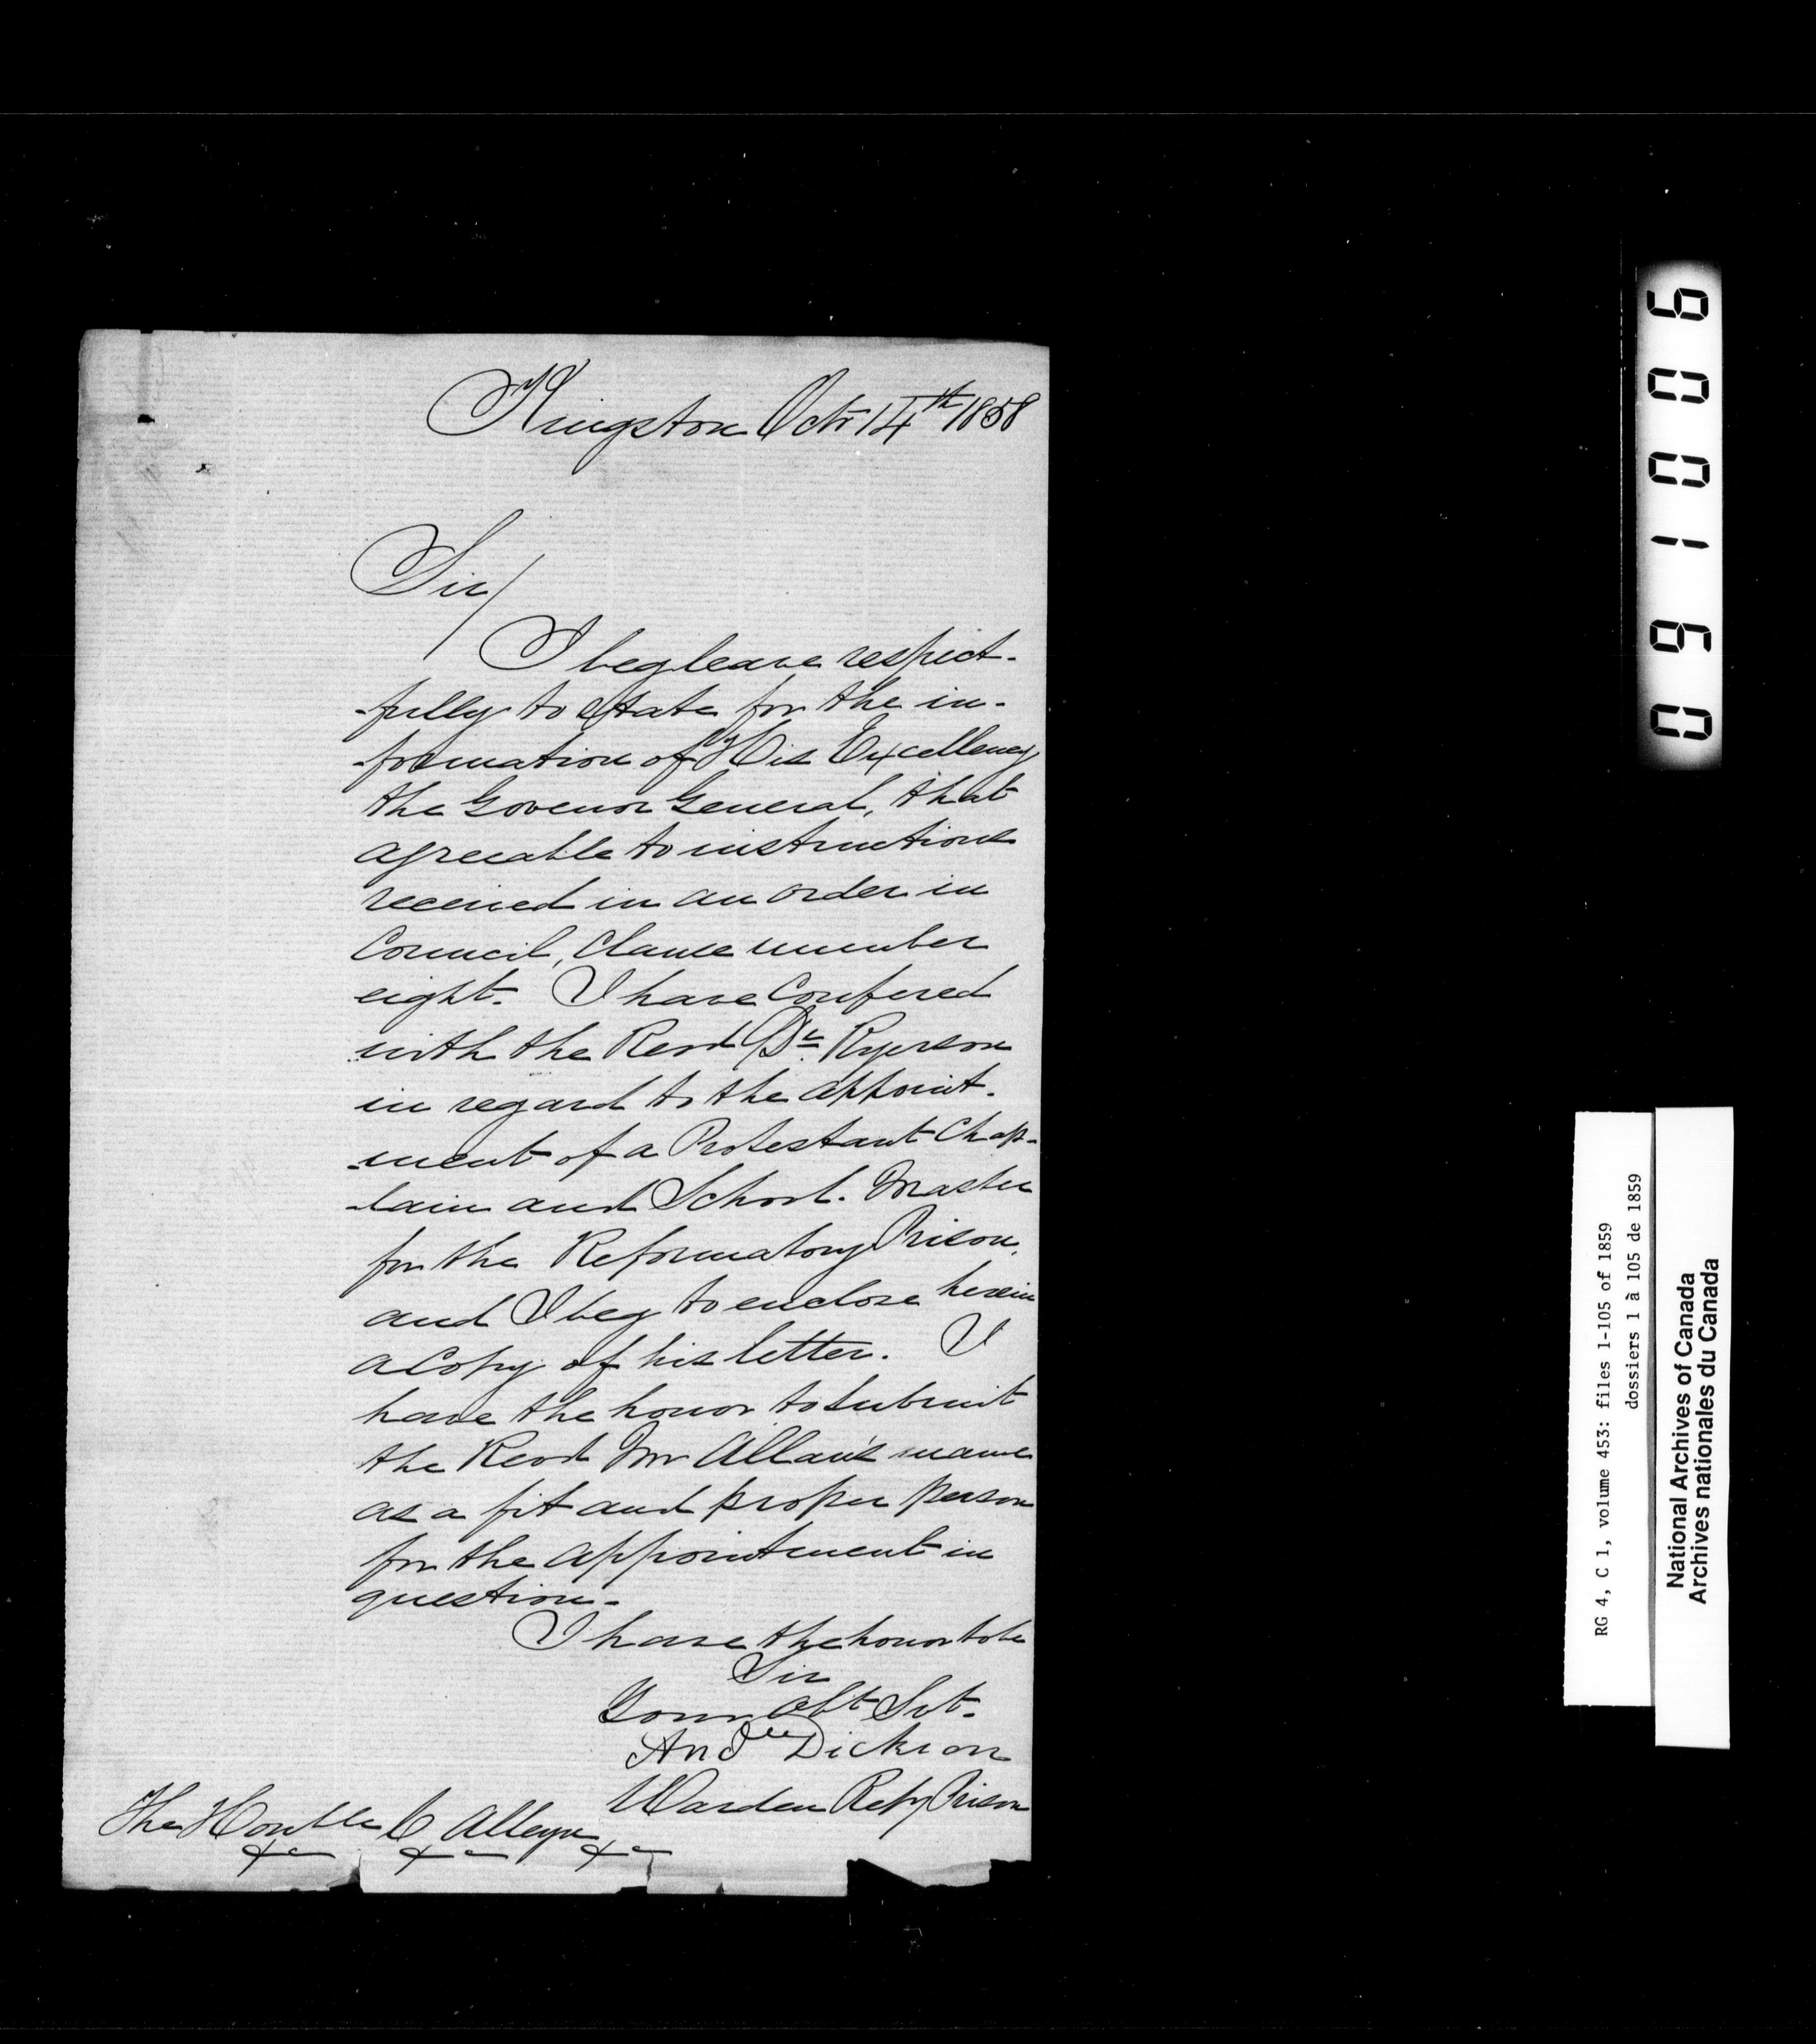 Kingston Octr 14th 1858
Sir/
I beg leave respect-
-fully to state for the in-
-formation of His Excellency
the Govenor General, that
agreeable to instructions
received in an order in
Council, Clause number
eight. I have Confered
with the Revd Dr. Ryerson
in regard to the appoint-
-ment of a Protestant Chap-
-lain and School-Master
for the Reformatory Prison,
and I beg to enclose herein
a Copy of his letter. I
have the honor to submit
the Revd Mr Allan's name
as a fit and proper person
for the appointment in
question-
I have the honor to be
Sir
Your Obt Svt.
Andw Dickson
Warden Refy Prison
The Honble C Alleyn
&c &c &c
091006
RG 4, C 1, volume 453: files 1-105 of 1859
dossiers 1 à 105 de 1859
National Archives of Canada
Archives nationales du Canada